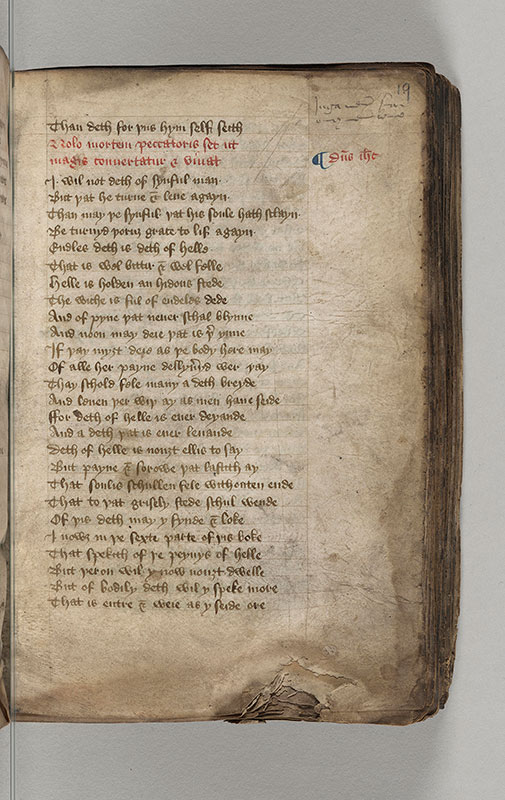 19
Than deth for þus hym self seith
Nolo mortem peccatoris set ut
magis conuertatur & viuat
¶ Dn̄s ih̄c
I wil not deth of synful man
But þat he turne & leue agayn
Than may þe synful þat his soule hath sclayn
Be turnyd þoruȝ grace to lif agayn
Endles deth is deth of helle
That is wol bittir & wol felle
Helle is holden an hidous stede
The wiche is ful of endeles dede
And of pyne þat neuer schal blynne
And noon may deie þat is þ̉ ynne
If þay myȝt deie as þe body here may
Of alle her payne delyủd wer þay
Thay schold fele many a deth breyde
And leuen þer wiþ ay as men haue seide
Ffor deth of helle is euer deyande
And a deth þat is euer leuande
Deth of helle is nouȝt ellis to say
But payne & sorowe þat lastith ay
That soulis schullen fele withouten ende
That to þat grisely stede schul wende
Of þis deth may y fynde & loke
I nowȝ in þe sexte parte of þis boke
That spekith of þe peynys of helle
But þeron wil y now nouȝt dwelle
But of bodily deth wil y speke more
That is entre & weie as y seide ore